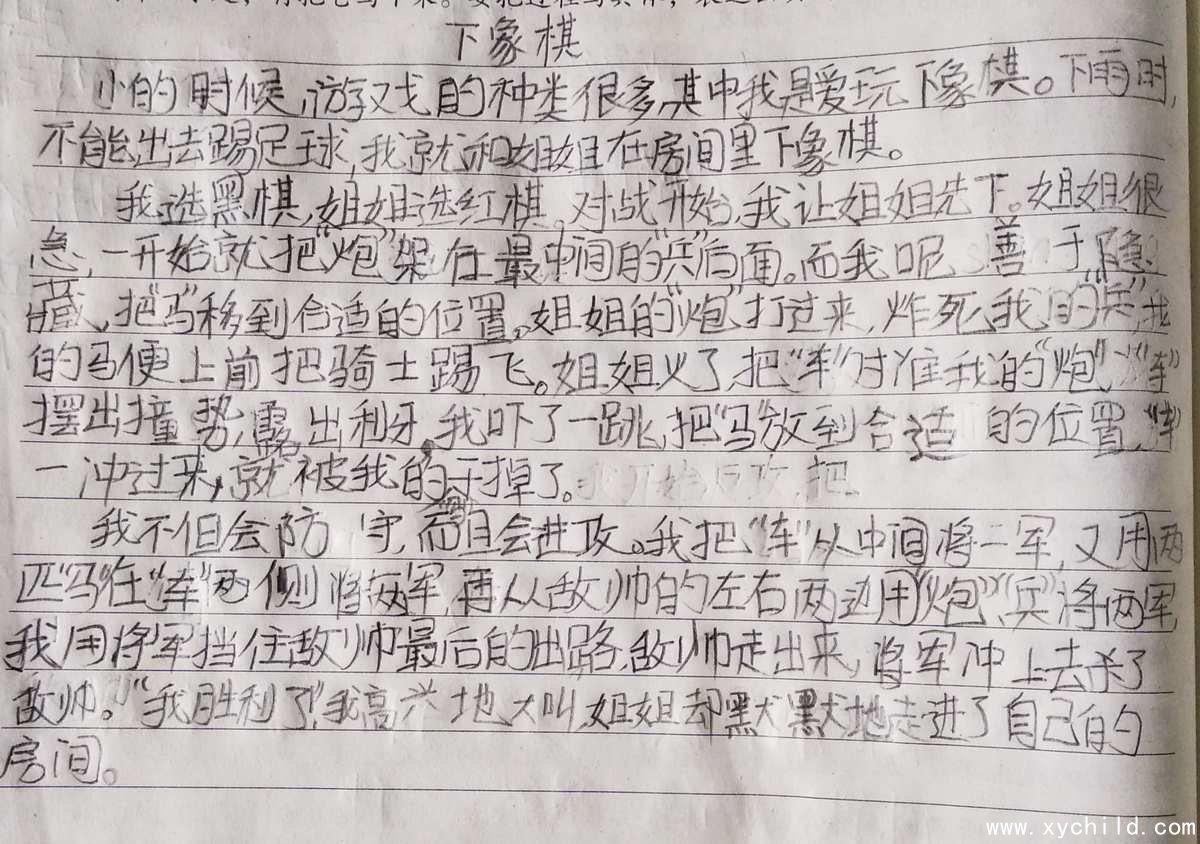 下象棋
小的时候,游戏的种类很多,其中我最爱玩下象棋。下雨时,
不能出去踢足球,我就和姐姐在房间里下象棋。
我选黑棋,姐姐选红棋。对战开始,我让姐姐先下。姐姐很
急,一开始就把“炮”架在最中间的“兵”后面。而我呢,善于隐
藏,把“马”移到合适的位置。姐姐的“炮”打过来,炸死我的“兵”,我
的马便上前把骑士踢飞。姐姐火了,把“车”对准我的“炮”,“车”
摆出撞势,露出利牙,我吓了一跳,把“马”放到合适的位置,“车”
一冲过来,就被我的干掉了。我开始反攻,把
我不但会防守,而且会进攻。我把“车”从中间将一军,又用两
匹“马”在“车”两侧将两军,再从敌帅的左右两边用“炮”、“兵”将两军,
我用将军挡住敌帅最后的出路,敌帅走出来,将军冲上去杀了
敌帅。“我胜利了”,我高兴地大叫,姐姐却默默地走进了自己的
房间。
www.xychild.com